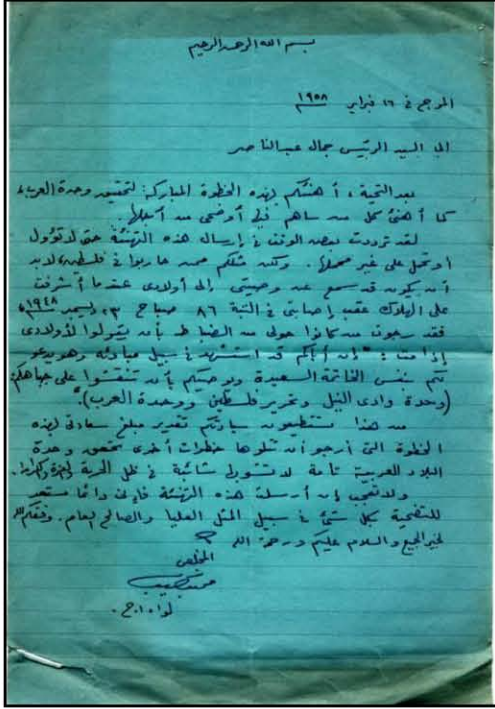 بسم الله الرحمن الرحيم
المرج في ١٦ فبراير ١٩٥٨
الى السيد الرئيس جمال عبد الناصر
بعد التحية ، أهنئكم بهذه الخطوة المباركة لتحقيق وحدة العرب ،
كما أهنئ كل من ساهم فيها أو ضحى من أجلها .
لقد ترددت بعض الوقت في إرسال هذه التهنئة حتى لا تؤول
أو تحمل على غير محملها . ولكن مثلكم ممن حاربوا في فلسطين لا بد
أن يكون قد سمع عن وصيتي إلى أولادي عندما أشرفت
على الهلاك عقب إصابتي في التبة ٨٦ صباح ٢٣ ديسمبر ١٩٤٨ ،
فقد رجوت من كانوا حولي من الضباط بأن يقولوا لأولادي
إذا مت : " إن أباكم قد استشهد في سبيل مبادئه وهو يدعو
لكم بنفس الخاتمة السعيدة ويوصيكم بأن تنقشوا على جباهكم
(وحدة وادي النيل وتحرير فلسطين ووحدة العرب) "
من هذا تستطيعون سيادتكم تقدير مبلغ سعادتي بهذه
الخطوة التي أرجو أن تتلوها خطوات أخرى تحقق وحدة
البلاد العربية تامة لا تشوبها شائبة في ظل الحرية والعزة والكرامة .
ولا تعجب إن أرسلت هذه التهنئة فإني دائما مستعد
للتضحية بكل شئ في سبيل المثل العليا والصالح العام . وفقكم الله
لخير الجميع والسلام عليكم ورحمة الله
المخلص
محمد نجيب
لواء ا . ح .